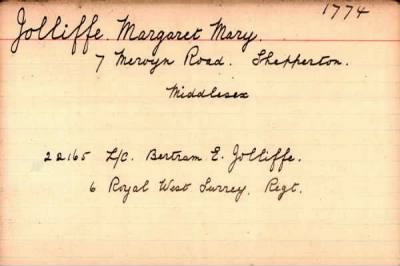 1774
Jolliffe. Margaret Mary.
7 Mervyn Road. Shepperton.
Middlesex
22165 L/C. Bertram E. Jolliffe.
6 Royal West Surrey. Regt.